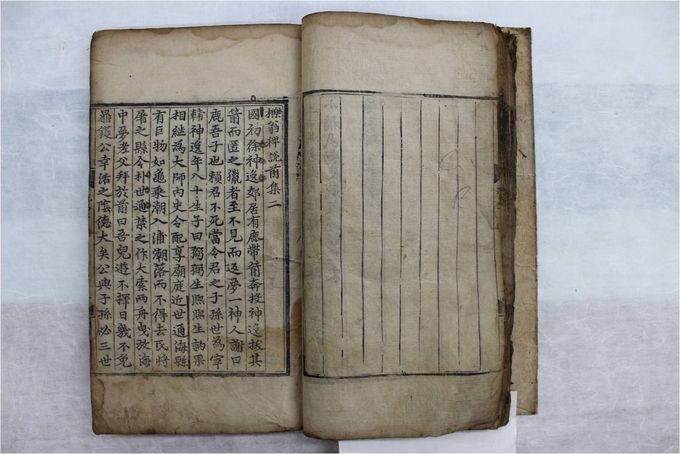 櫟翁稗說前集二
國初徐神逸郊居有鹿帶箭奔投神逸拔其
箭而匿之獵者至不見而返夢一神人謝曰
鹿吾子也賴君不死當令君之子孫世為宰
輔神逸年八十生子曰弼弼生熙熙生訥果
相継為大師內史令配享廟庭近世通海縣
有巨物如龜乘潮入浦潮落而不得去民將
屠之縣令朴世通禁之作大索兩舟曳放海
中夢老父拜於前曰吾兒遊不擇日幾不免
鼎鑊公幸活之陰德大矣公與子孫必三世